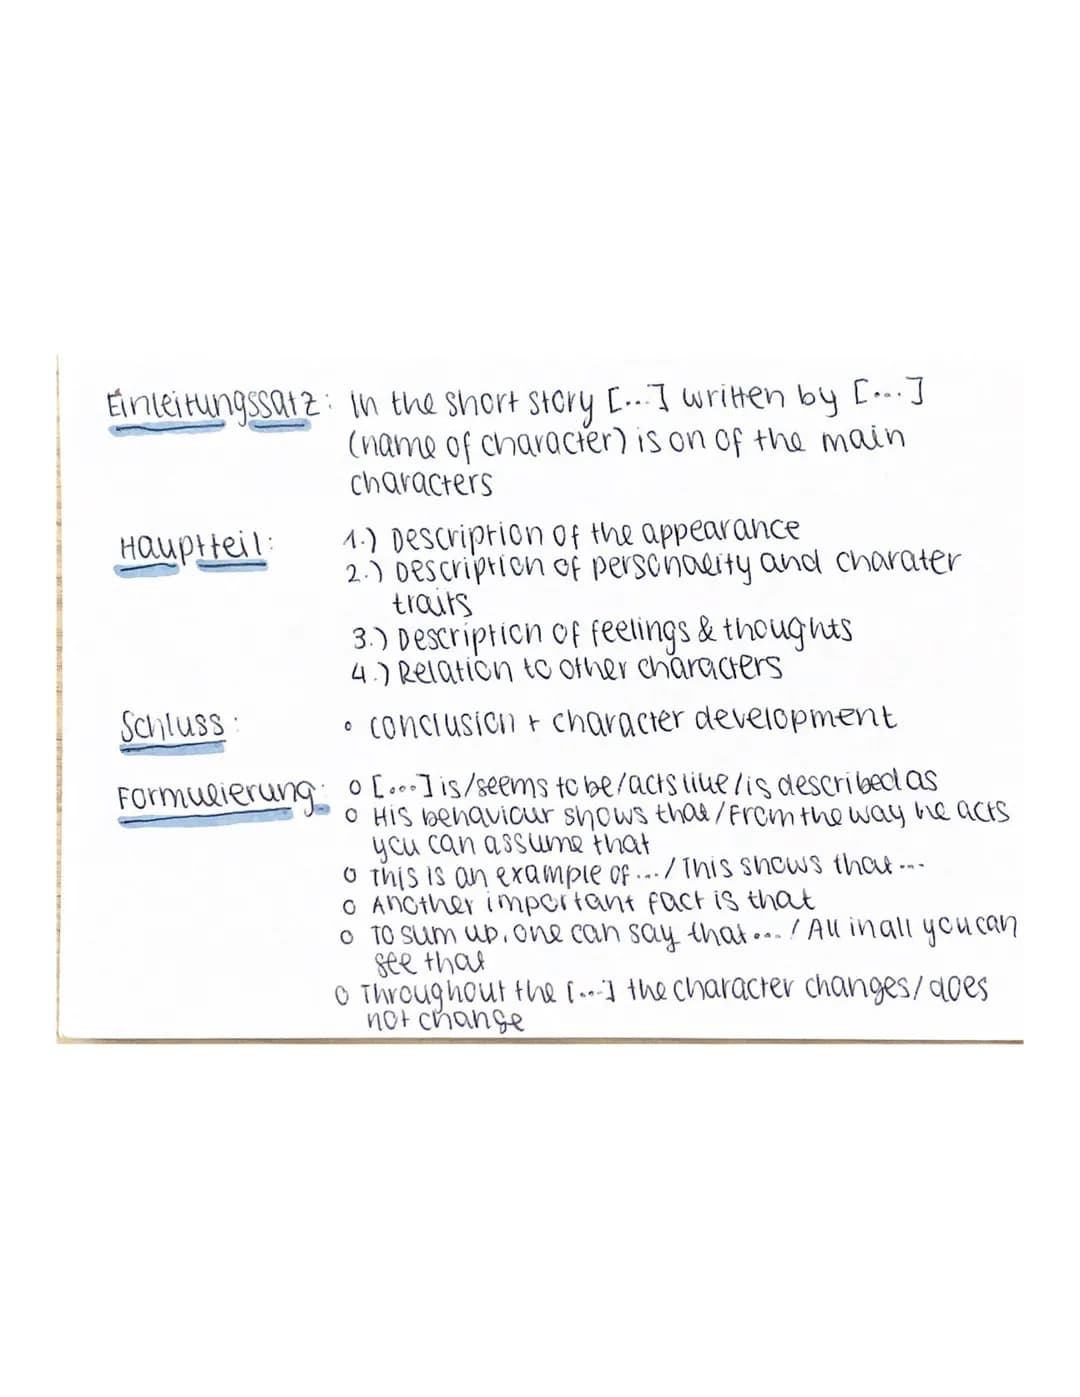 Einleitungssatz: In the short story [...] written by [...]
(name of character) is on of the main
characters
Hauptteil: 1.) Description of the appearance
2.) Description of personality and charater
traits
3.) Description of feelings & thoughts
4.) Relation to other characters
Schluss: • conclusion + character development
Formulierung: o [...] is/seems to be/acts like/is described as
o His behaviour shows that/From the way he acts
you can assume that
o This is an example of.../This shows that...
o Another important fact is that
o To sum up, one can say that.../All in all you can
see that
o Throughout the [...] the character changes/does
not change